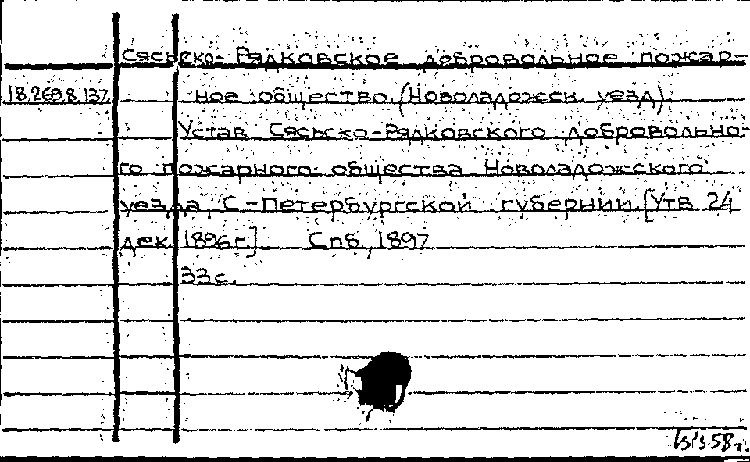 Сясьско-Рядковское добровольное пожар-
18.269.8.137 ное общество (Новоладожск. уезд)
Устав Сясьско-Рядковского добровольно-
го пожарного общества Новоладожского
уезда С-Петербургской губернии. [Утв. 24
дек. 1896 г.]. Спб, 1897
33 с.